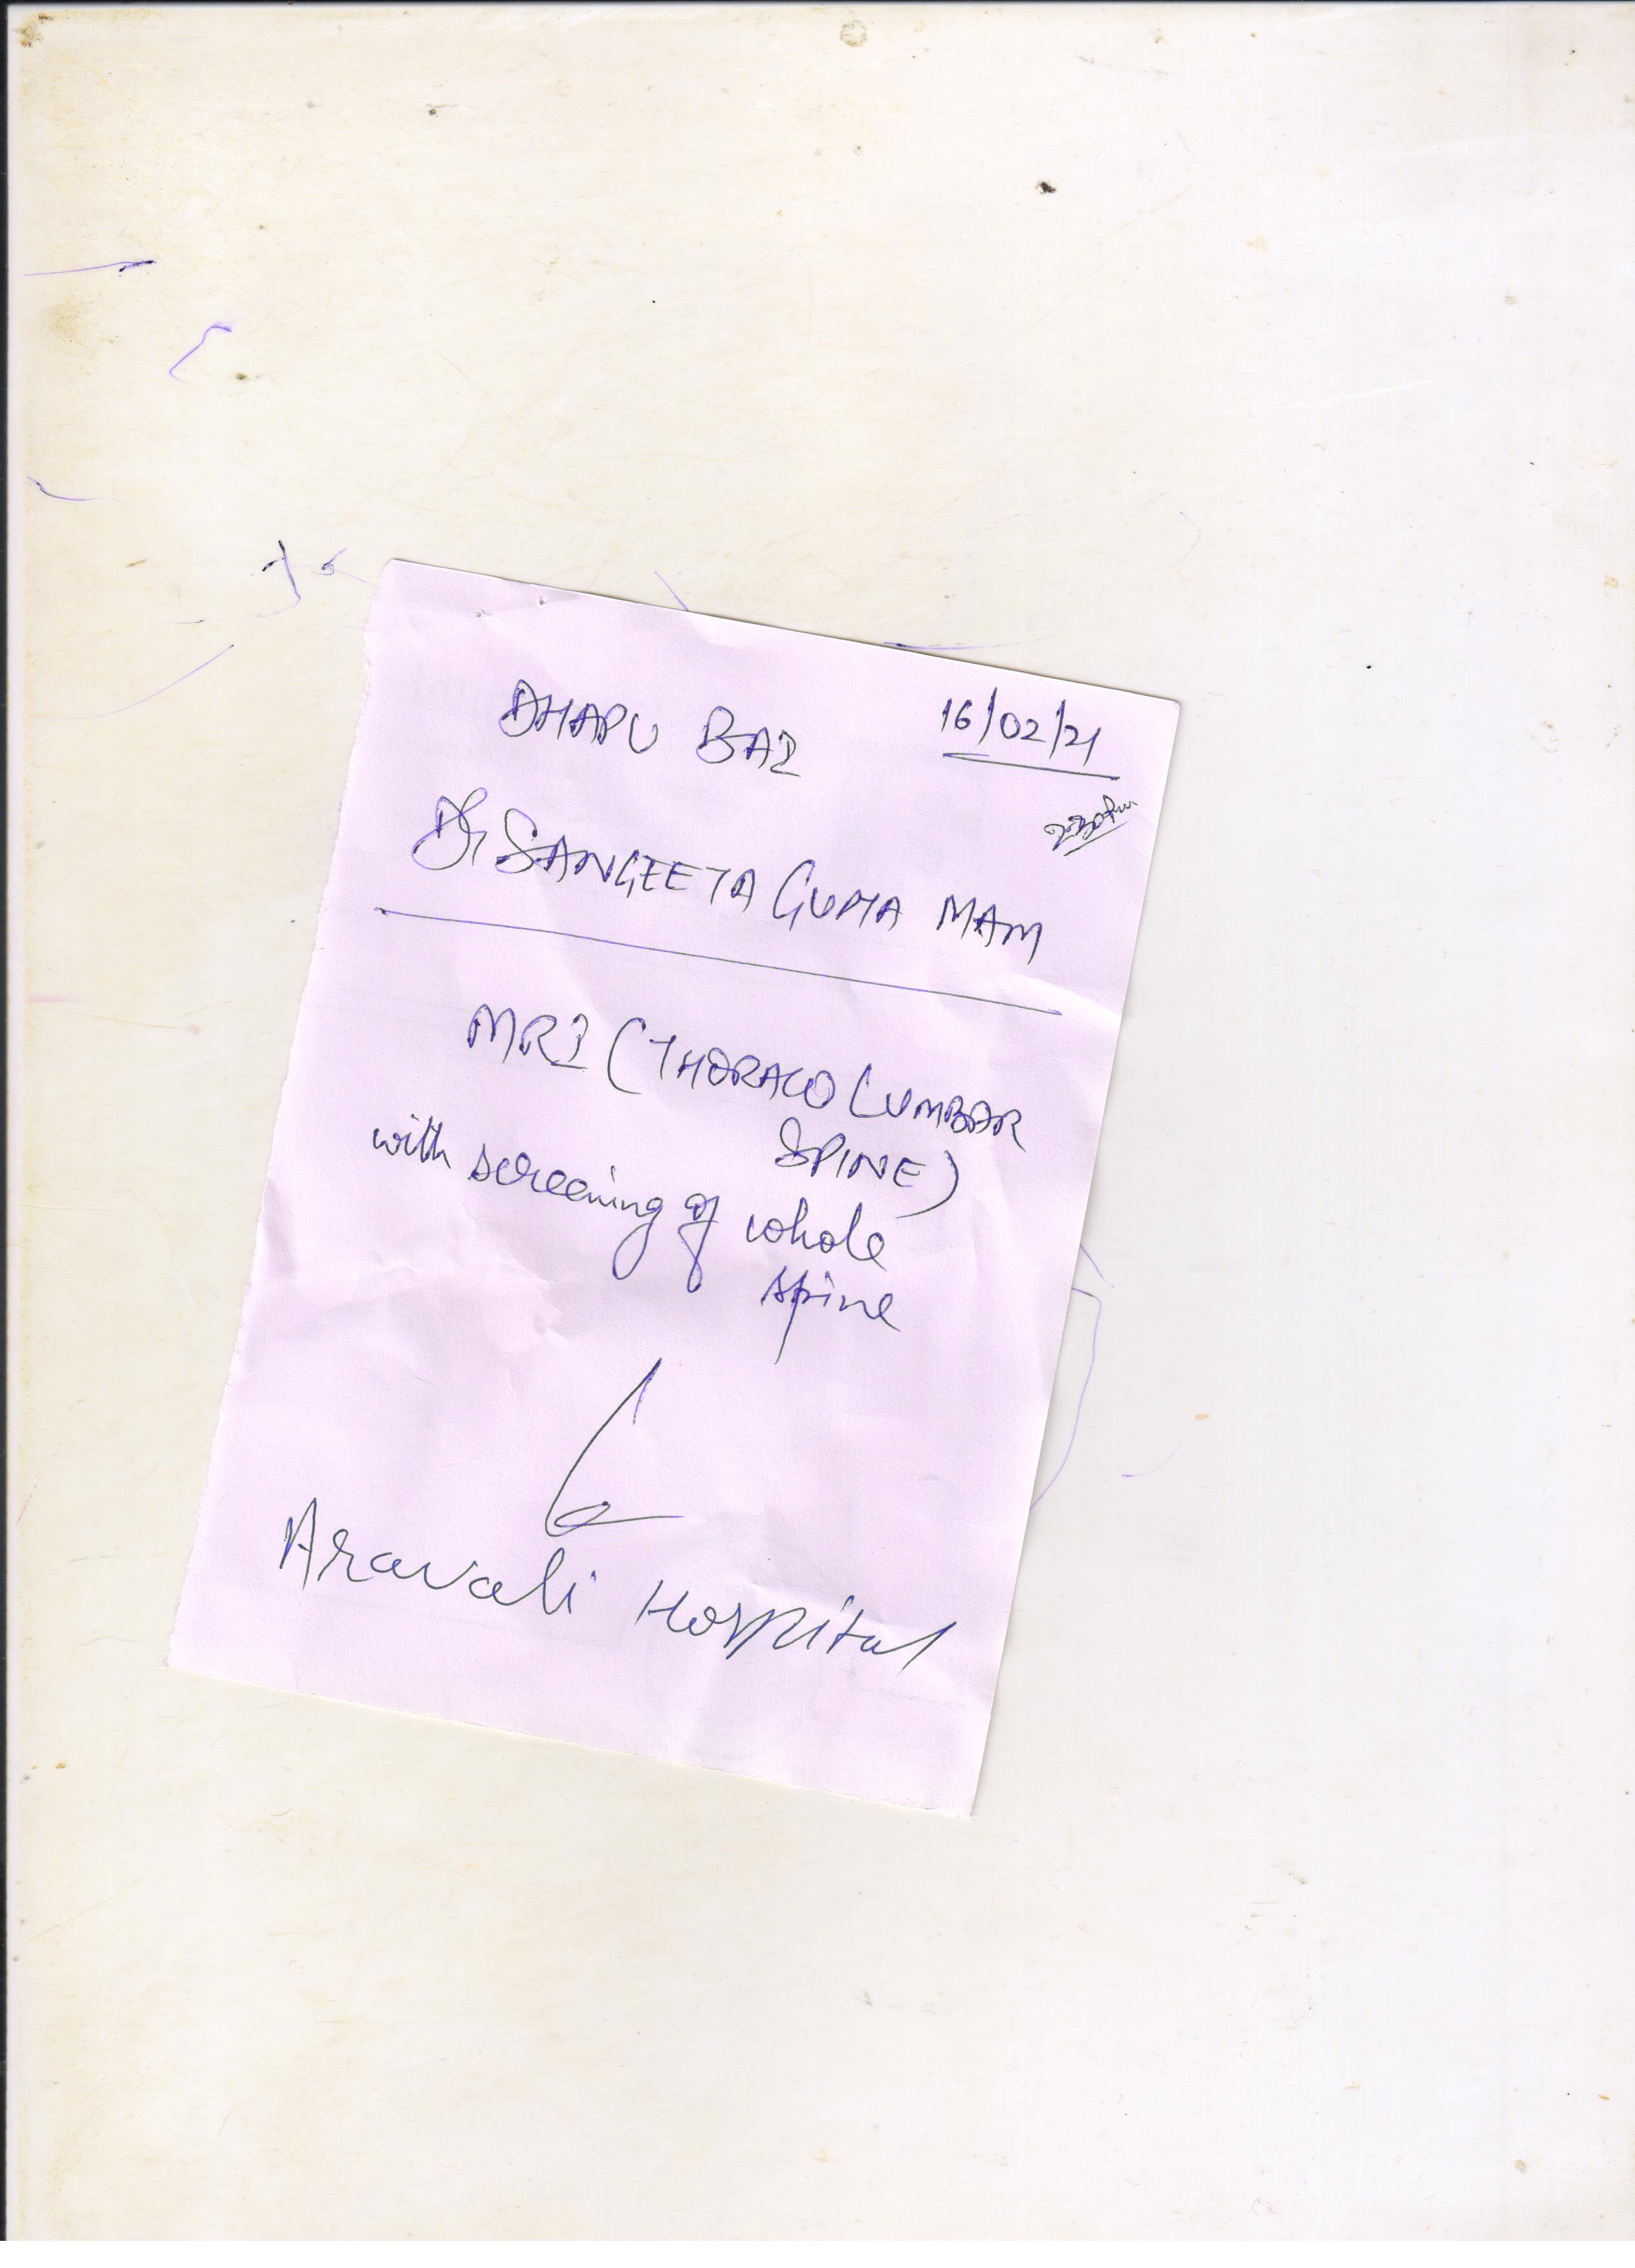 DHAPU BAI 16/02/21
Dr SANGEETA GUPTA MAM
MRI (THORACO LUMBAR
SPINE)
with screening of whole
spine
Aravali Hospital